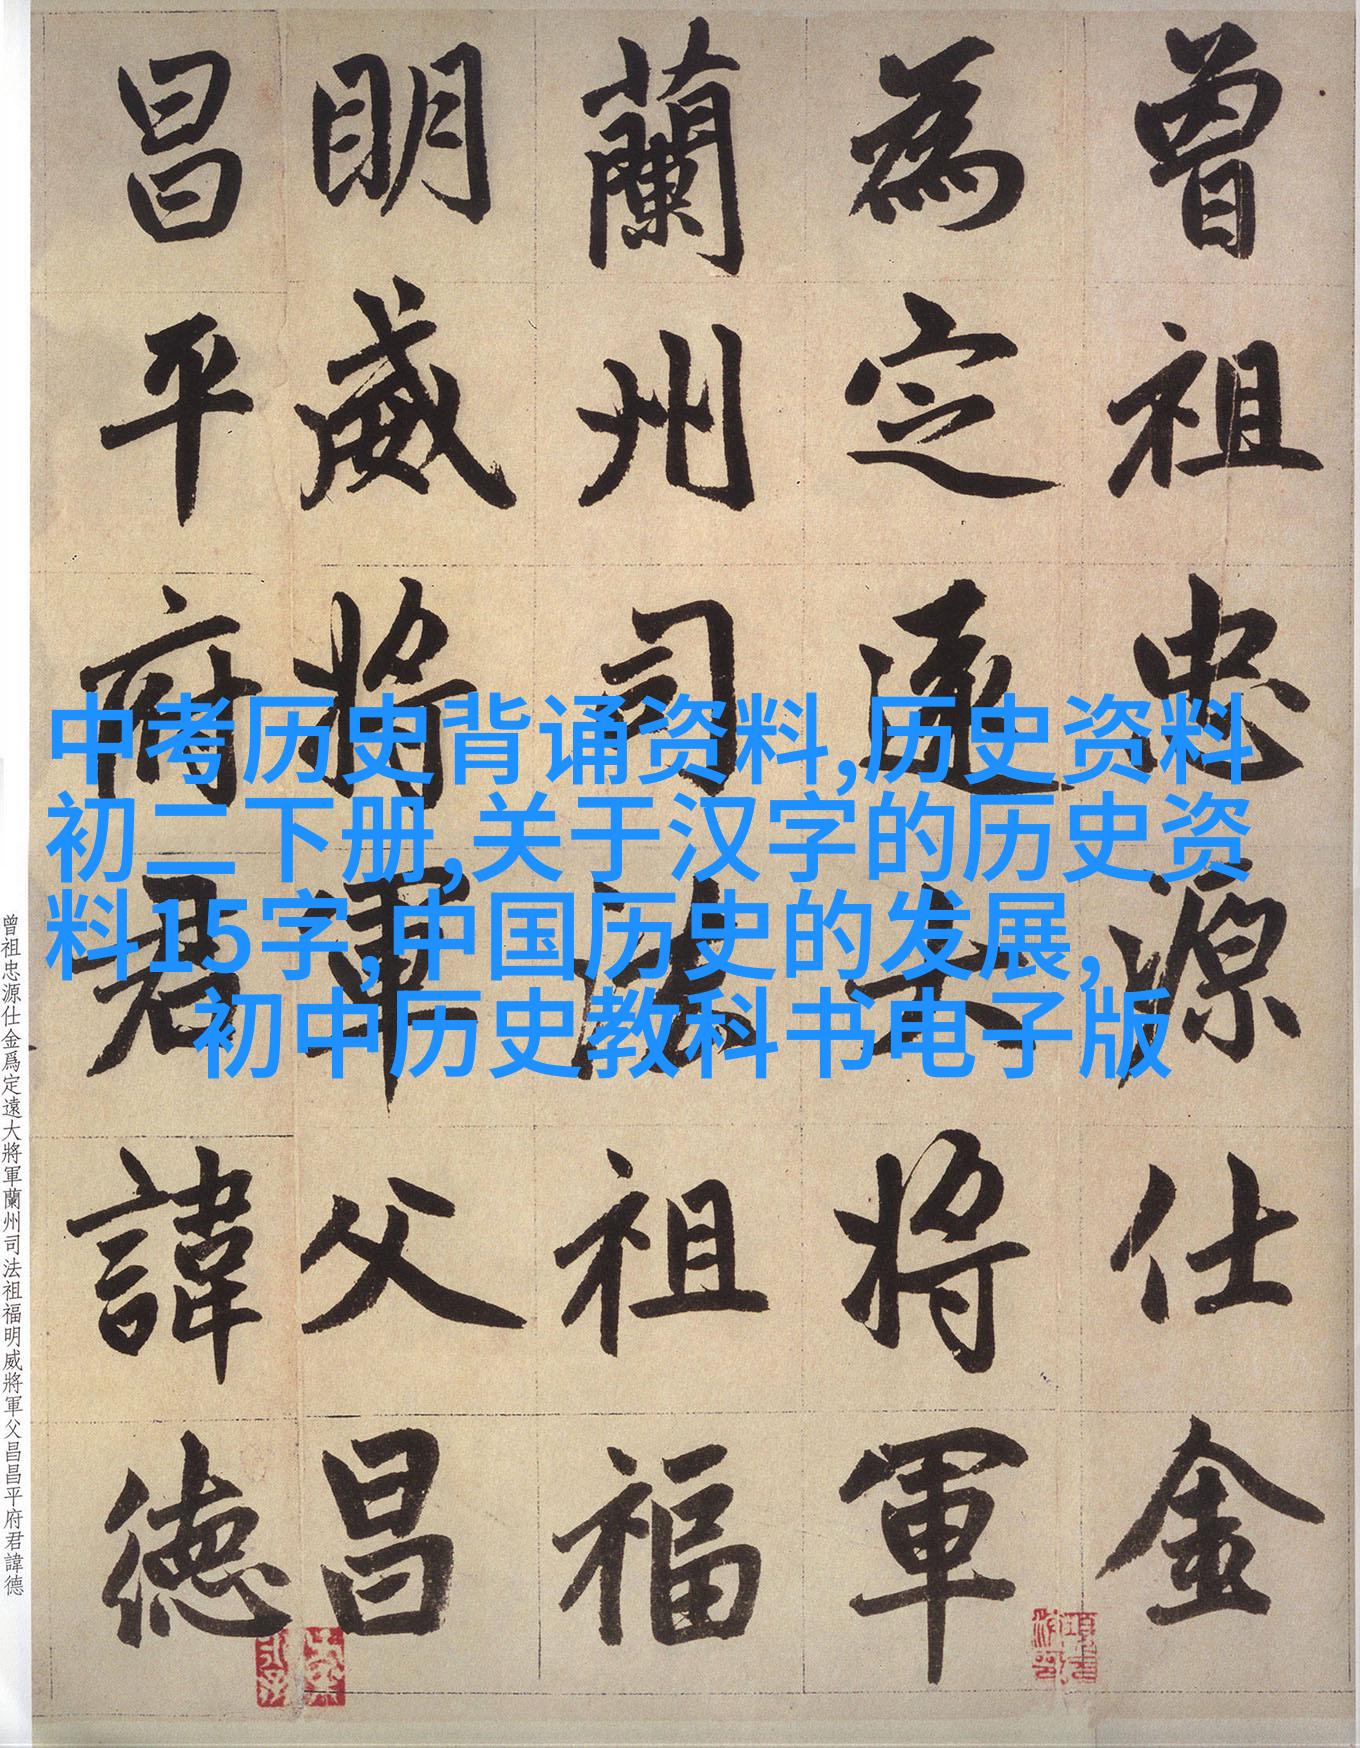 曾祖忠源仕金
為定遠大將軍
蘭州司法祖福
明威將軍父昌
昌平府君諱德
中考历史背诵资料,历史资料
初二下册,关于汉字的历史资
料15字,中国历史的发展,
初中历史教科书电子版
曾祖忠源仕金爲定遠大將軍蘭州司法祖福明威將軍父昌昌平府君諱德